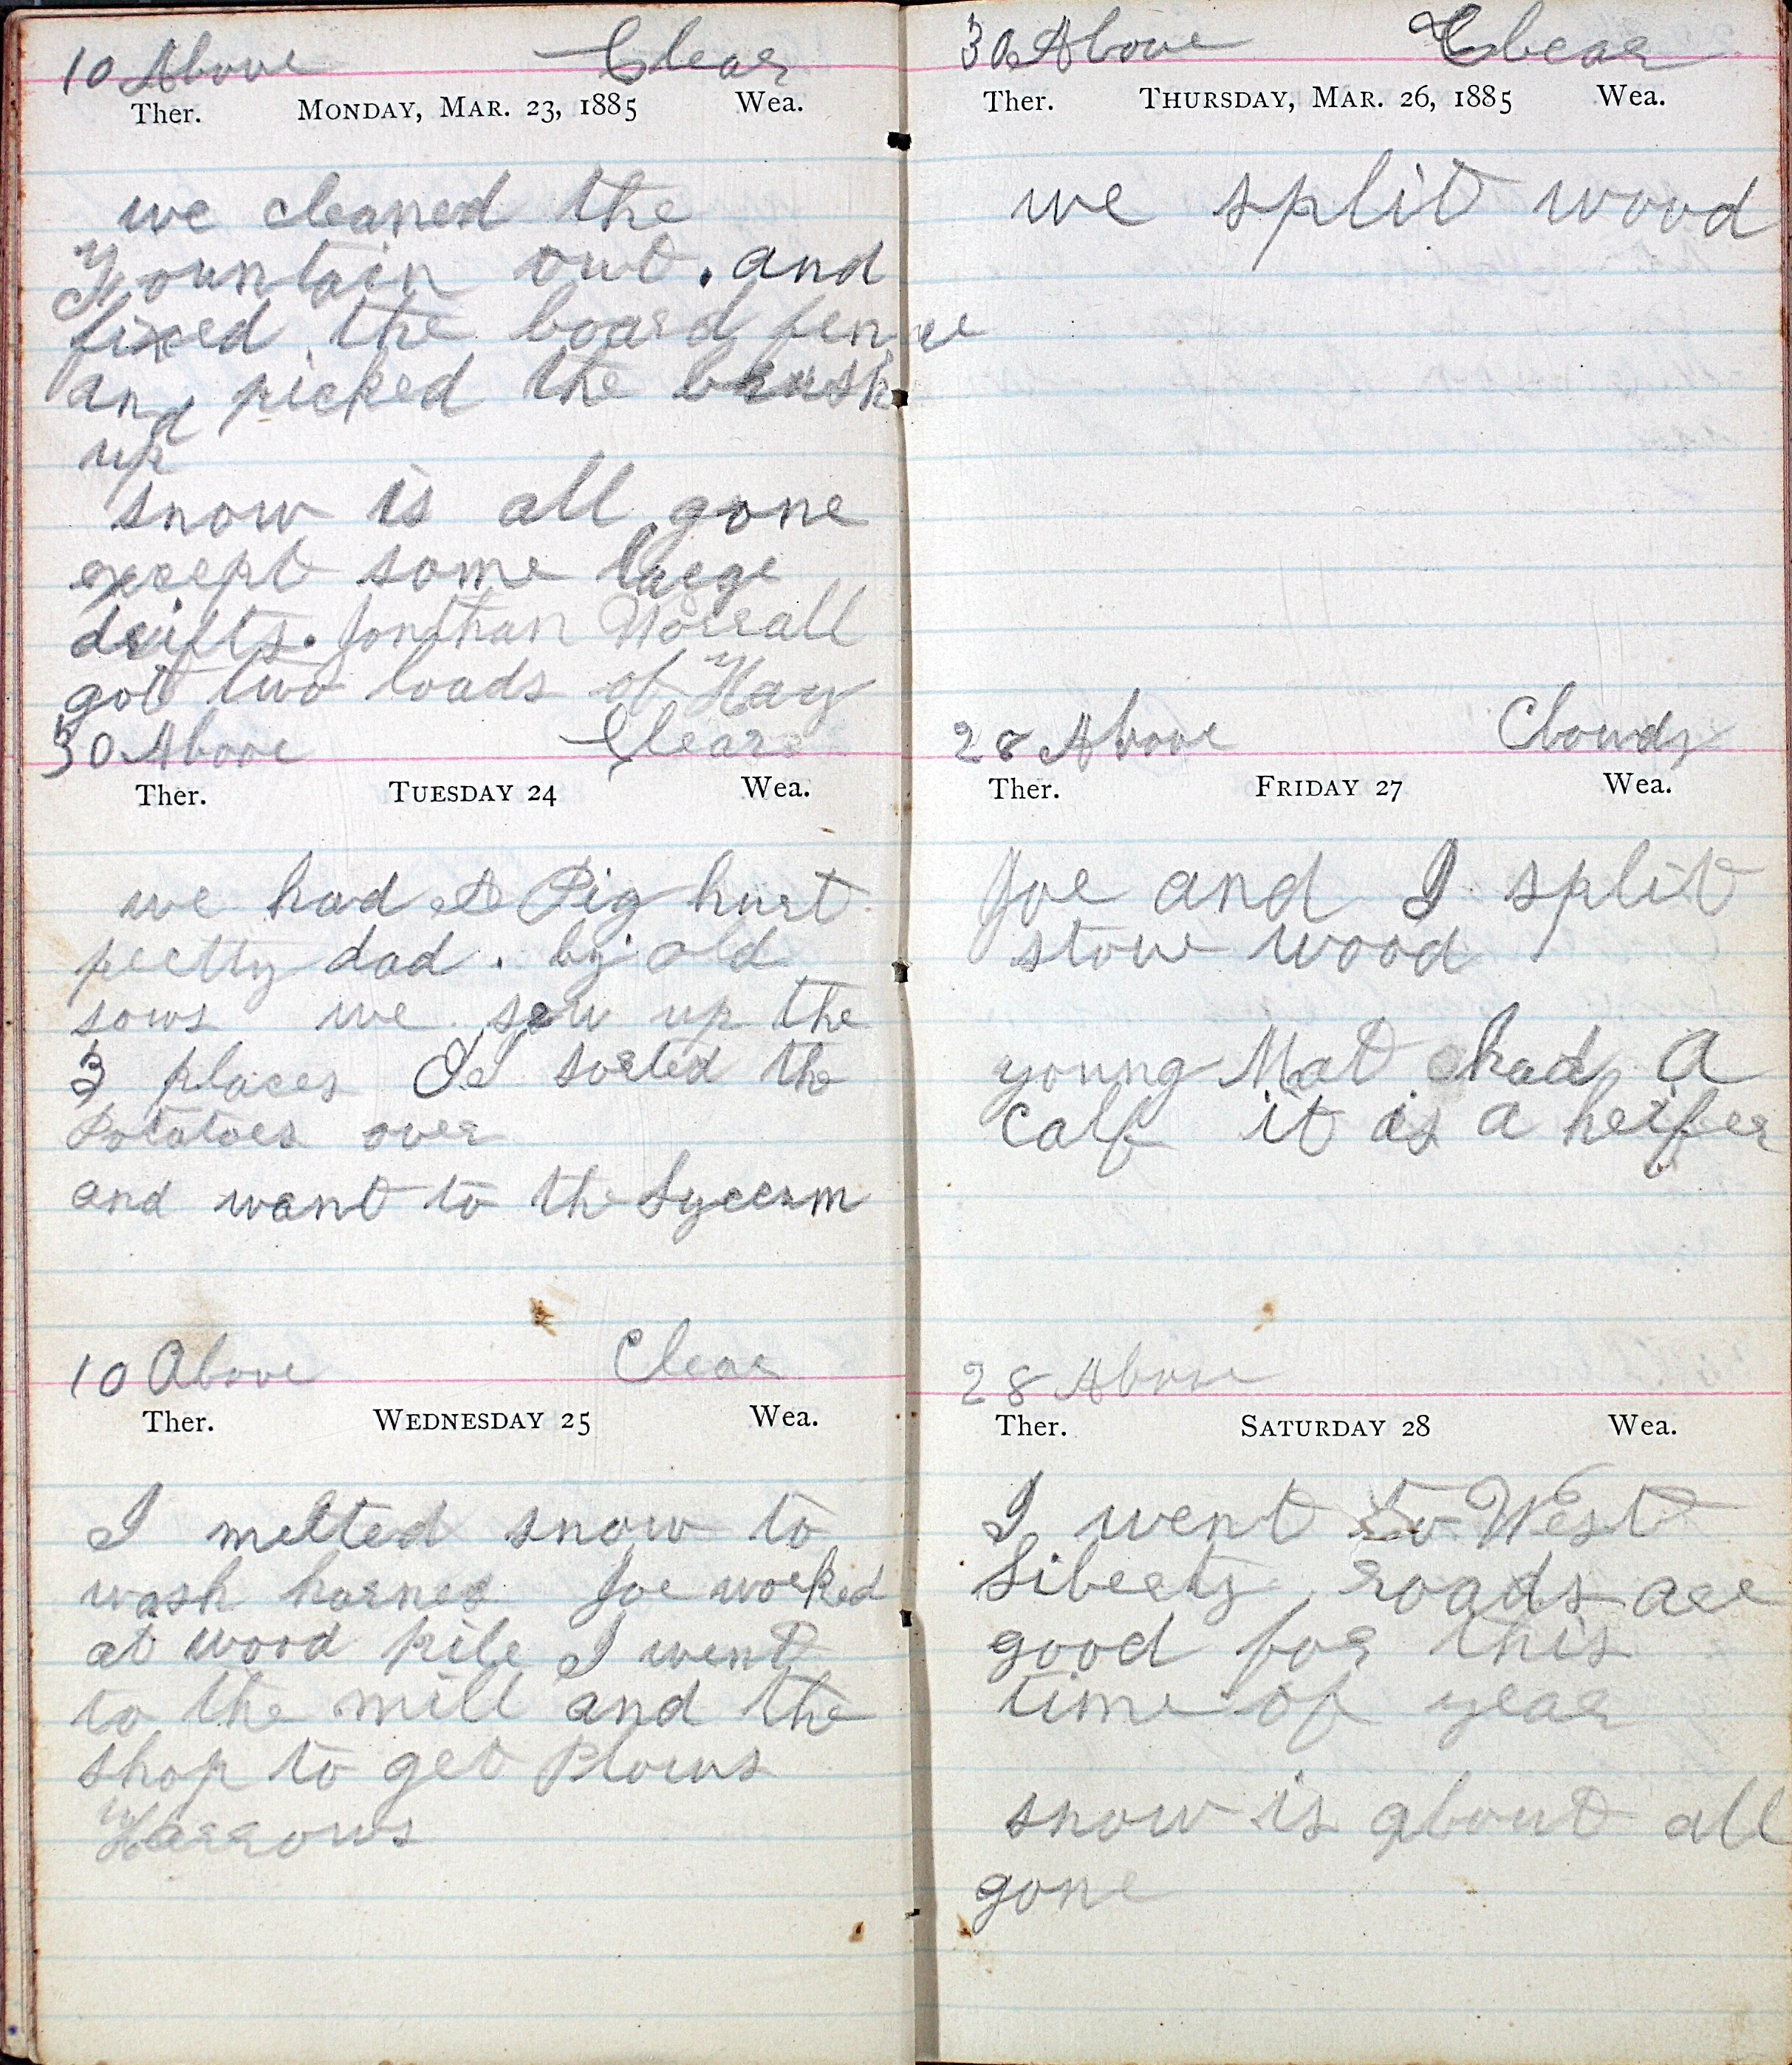 10 Above Clear
Ther. Monday, Mar. 23, 1885 Wea.
we cleaned the
Fountain out. and
fixed the board fence
and picked the brush
up
snow is all gone
except some large
drifts. Jonthan Worrall
got two loads of Hay
30 Above Clear
Ther. Tuesday 24 Wea.
we had A Pig hurt
pretty dad. by old
sows we sew up the
3 places I sorted the
Potatoes over
and want to the Lyceum
10 Above Clear
Ther. Wednesday 25 Wea.
I melted snow to
wash harnes Joe worked
at wood pile I went
to the mill and the
shop to get Plows
Harrows
30 Above Clear
Ther. Thursday, Mar. 26, 1885 Wea.
we split wood
28 Above Cloudy
Ther. Friday 27 Wea.
Joe and I split
stove wood
young Mat had A
calf it is a heifer
28 Above
Ther. Saturday 28 Wea.
I went to West
Liberty roads are
good for this
time of year
snow is about all
gone